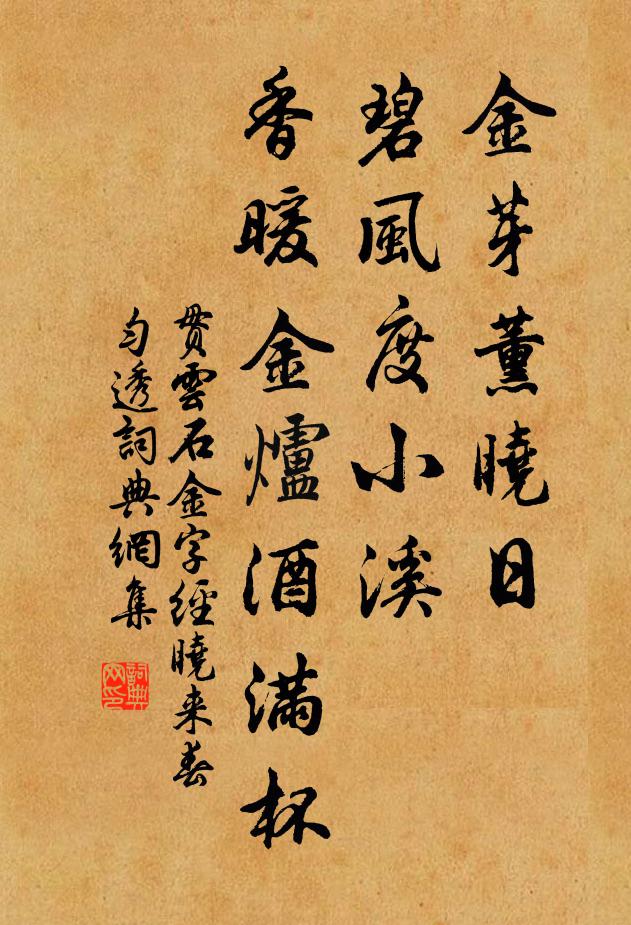 金芽薰曉日
碧風度小溪
香暖金爐酒滿杯
貫雲石金字經曉来春
勻透詞典網集
詞典
网印